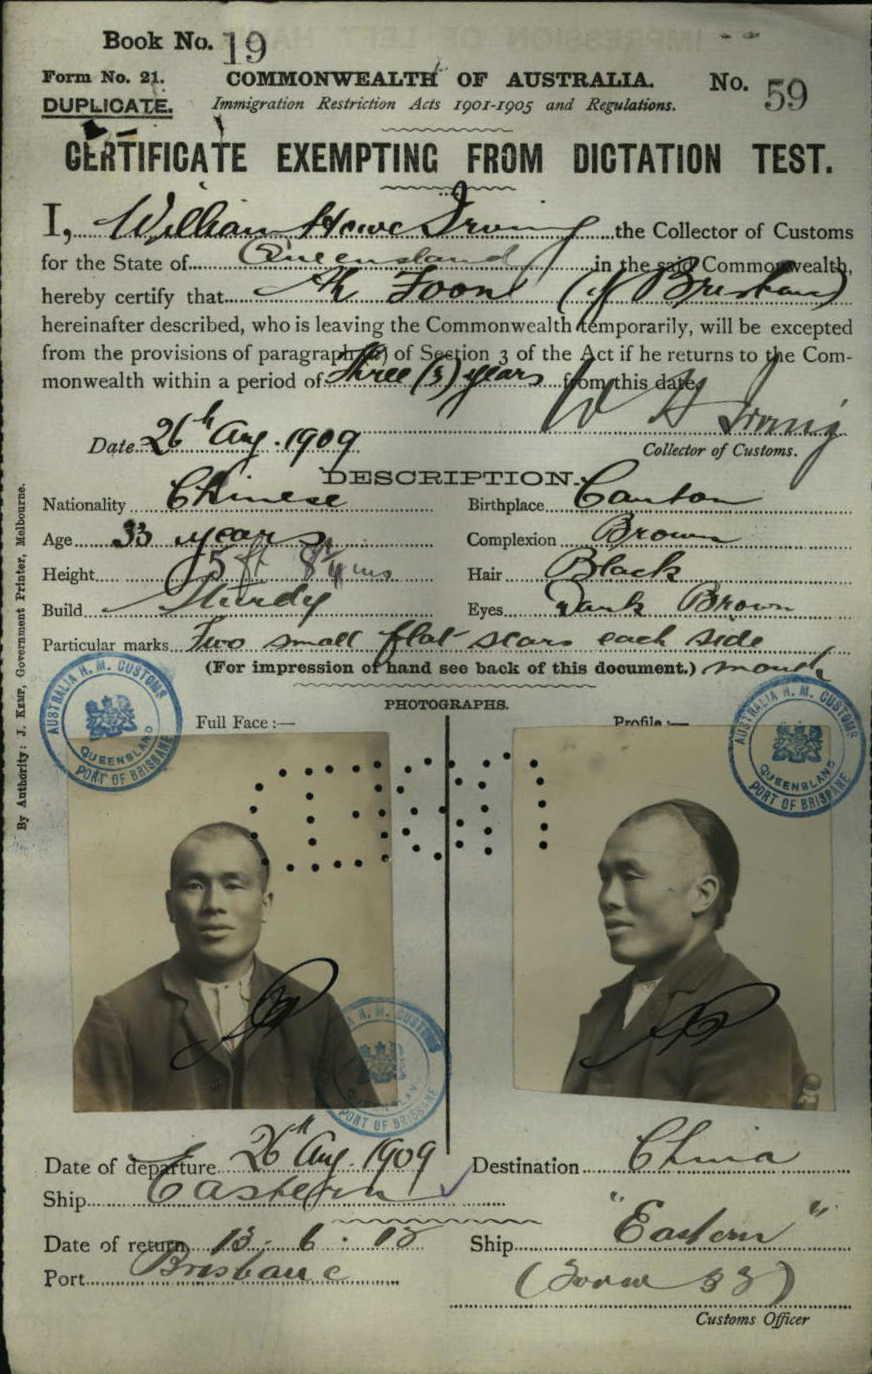 Book No. 19
Form No. 21. COMMONWEALTH OF AUSTRALIA. No. 59
DUPLICATE. Immigration Restriction Acts 1901-1905 and Regulations.
CERTIFICATE EXEMPTING FROM DICTATION TEST.
I, William Howe Irving the Collector of Customs
for the State of Queensland in the said Commonwealth,
hereby certify that Ah Foon (of Brisbane)
hereinafter described, who is leaving the Commonwealth temporarily, will be excepted
from the provisions of paragraph (a) of Section 3 of the Act if he returns to the Com-
monwealth within a period of three (3) years from this date.
W H Irving
Date 26th Aug. 1909 Collector of Customs.
DESCRIPTION.
Nationality Chinese Birthplace Canton
Age 33 years Complexion Brown
Height 5 ft 8¼ ins Hair Black
Build Sturdy Eyes Dark Brown
Particular marks Two small flat scars each side
(For impression of hand see back of this document.) mouth
PHOTOGRAPHS.
Full Face :— Profile :—
AUSTRALIA H. M. CUSTOMS
QUEENSLAND
PORT OF BRISBANE
AUSTRALIA H. M. CUSTOMS
QUEENSLAND
PORT OF BRISBANE
A H. M. CUSTOMS
QUEENSLAND
PORT OF BRISBANE
By Authority: J. KEMP, Government Printer, Melbourne.
Date of departure 26th Aug 1909 Destination China
Ship Eastern
Date of return 13.6.12 Ship "Eastern"
Port Brisbane (Form 32)
Customs Officer